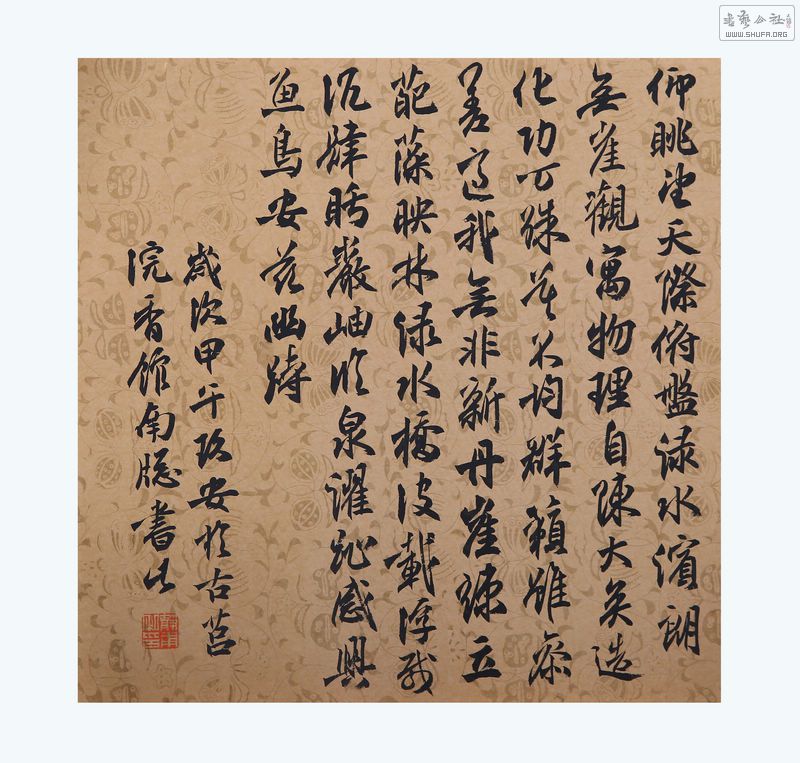 書藝公社
WWW.SHUFA.ORG
仰眺望天際俯盤淥水濱朗
無崖觀寓物理自陳大矣造
化功万殊莫不均群籟雖參
差適我無非新丹崖竦立
葩藻映林淥水揚波載浮載
沉肆眄巖岫臨泉濯趾感興
魚鳥安茲幽跱
歲次甲午玖安於古莒
浣香館南牕書此